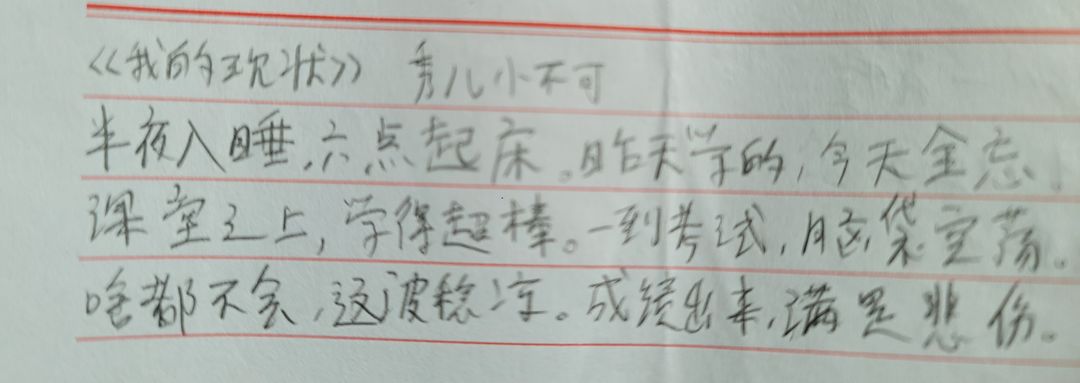 《我的现状》 秀儿小不可
半夜入睡,六点起床。昨天学的,今天全忘.
课堂之上,学得超棒。一到考试,脑袋空荡。
啥都不会,这波稳凉。成绩出来,满是悲伤。